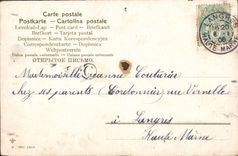 Carte postale
Postkarte - Cartolina postale
Levelező-Lap - Post card - Briefkaart
Brefkort - Tarjeta postal
Dopisnice - Karta Korespondencyjna
Correspondenzkarte - Dopisnica
Weltpostverein - Union postale universelle
ОТКРЫТОЕ ПИСЬМО.
LANGRES
HAUTE MARNE
Mademoiselle Jeanne Couturier
chez ses parents Cordonnier, rue
à Langres
Haute Marne